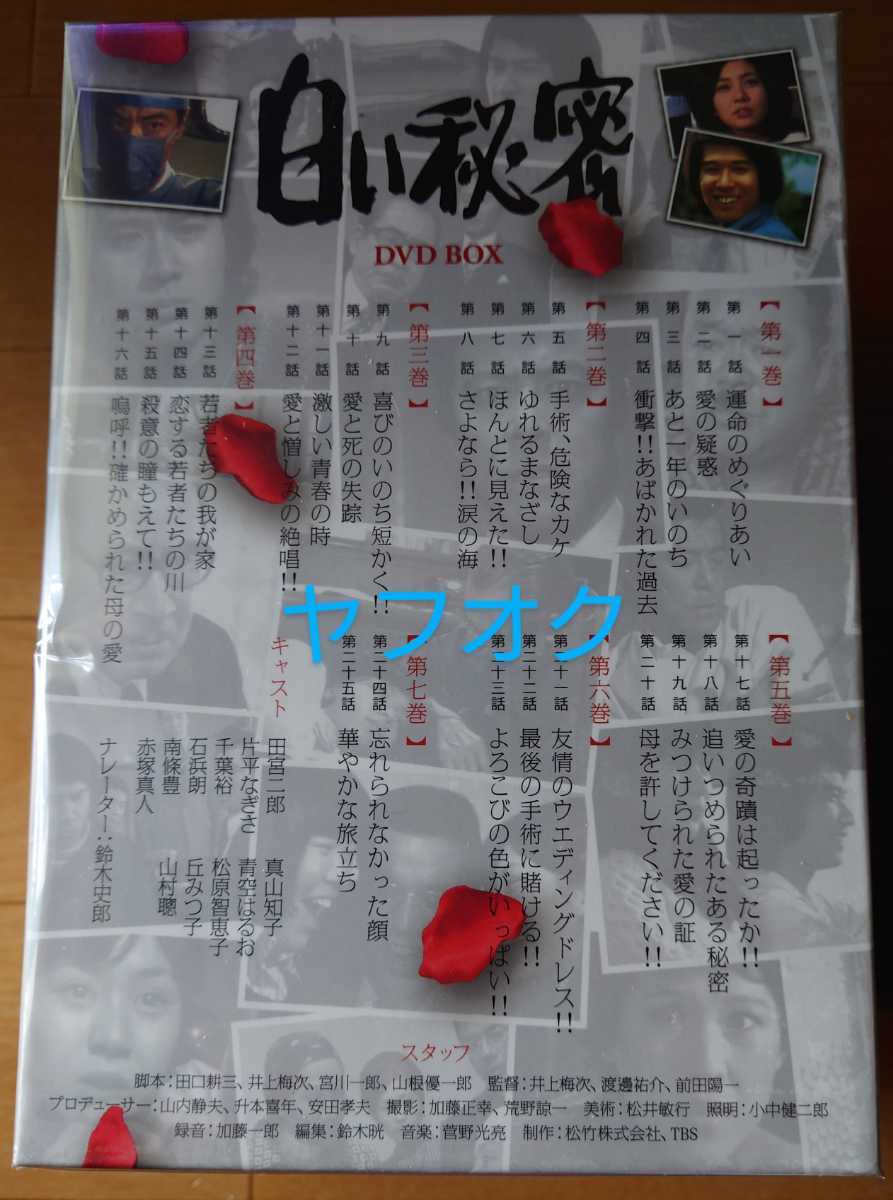 白い秘密
DVD BOX
【第一巻】
第一話 運命のめぐりあい
第二話 愛の疑惑
第三話 あと一年のいのち
第四話 衝撃!!あばかれた過去
【第二巻】
第五話 手術、危険なカケ
第六話 ゆれるまなざし
第七話 ほんとに見えた!!
第八話 さよなら!!涙の海
【第三巻】
第九話 喜びのいのち短かく!!
第十話 愛と死の失踪
第十一話 激しい青春の時
第十二話 愛と憎しみの絶唱!!
【第四巻】
第十三話 若者たちの我が家
第十四話 恋する若者たちの川
第十五話 殺意の瞳もえて!!
第十六話 嗚呼!!確かめられた母の愛
ヤフオク
【第五巻】
第十七話 愛の奇蹟は起ったか!!
第十八話 追いつめられたある秘密
第十九話 みつけられた愛の証
第二十話 母を許してください!!
【第六巻】
第二十一話 友情のウエディングドレス!!
第二十二話 最後の手術に賭ける!!
第二十三話 よろこびの色がいっぱい!!
【第七巻】
第二十四話 忘れられなかった顔
第二十五話 華やかな旅立ち
キャスト
田宮二郎 真山知子
片平なぎさ 青空はるお
千葉裕 松原智恵子
石浜朗 丘みつ子
南條豊 山村聰
赤塚真人
ナレーター:鈴木史郎
スタッフ
脚本:田口耕三、井上梅次、宮川一郎、山根優一郎 監督:井上梅次、渡邊祐介、前田陽一
プロデューサー:山内静夫、升本喜年、安田孝夫 撮影:加藤正幸、荒野諒一 美術:松井敏行 照明:小中健二郎
録音:加藤一郎 編集:鈴木晄 音楽:菅野光亮 制作:松竹株式会社、TBS